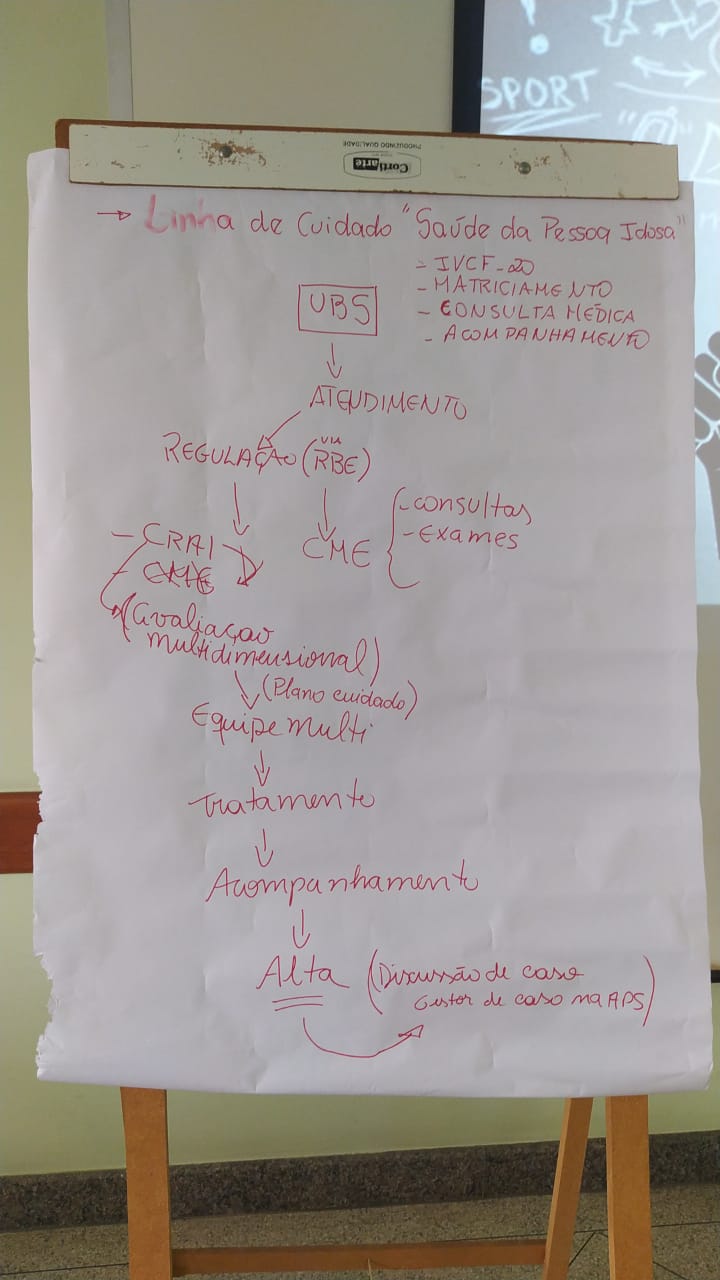 SPORT
PRODUZINDO QUALIDADE
Cortiarte
→ Linha de Cuidado "Saúde da Pessoa Idosa"
- IVCF-20
- MATRICIAMENTO
- CONSULTA MÉDICA
- ACOMPANHAMENTO
UBS
ATENDIMENTO
REGULAÇÃO (VIA RBE)
- consultas
- Exames
- CRAI
CME
- CME
(Avaliação
multidimensional)
(Plano cuidado)
Equipe multi
Tratamento
Acompanhamento
Alta (Discussão de caso
Gestor de caso na APS)